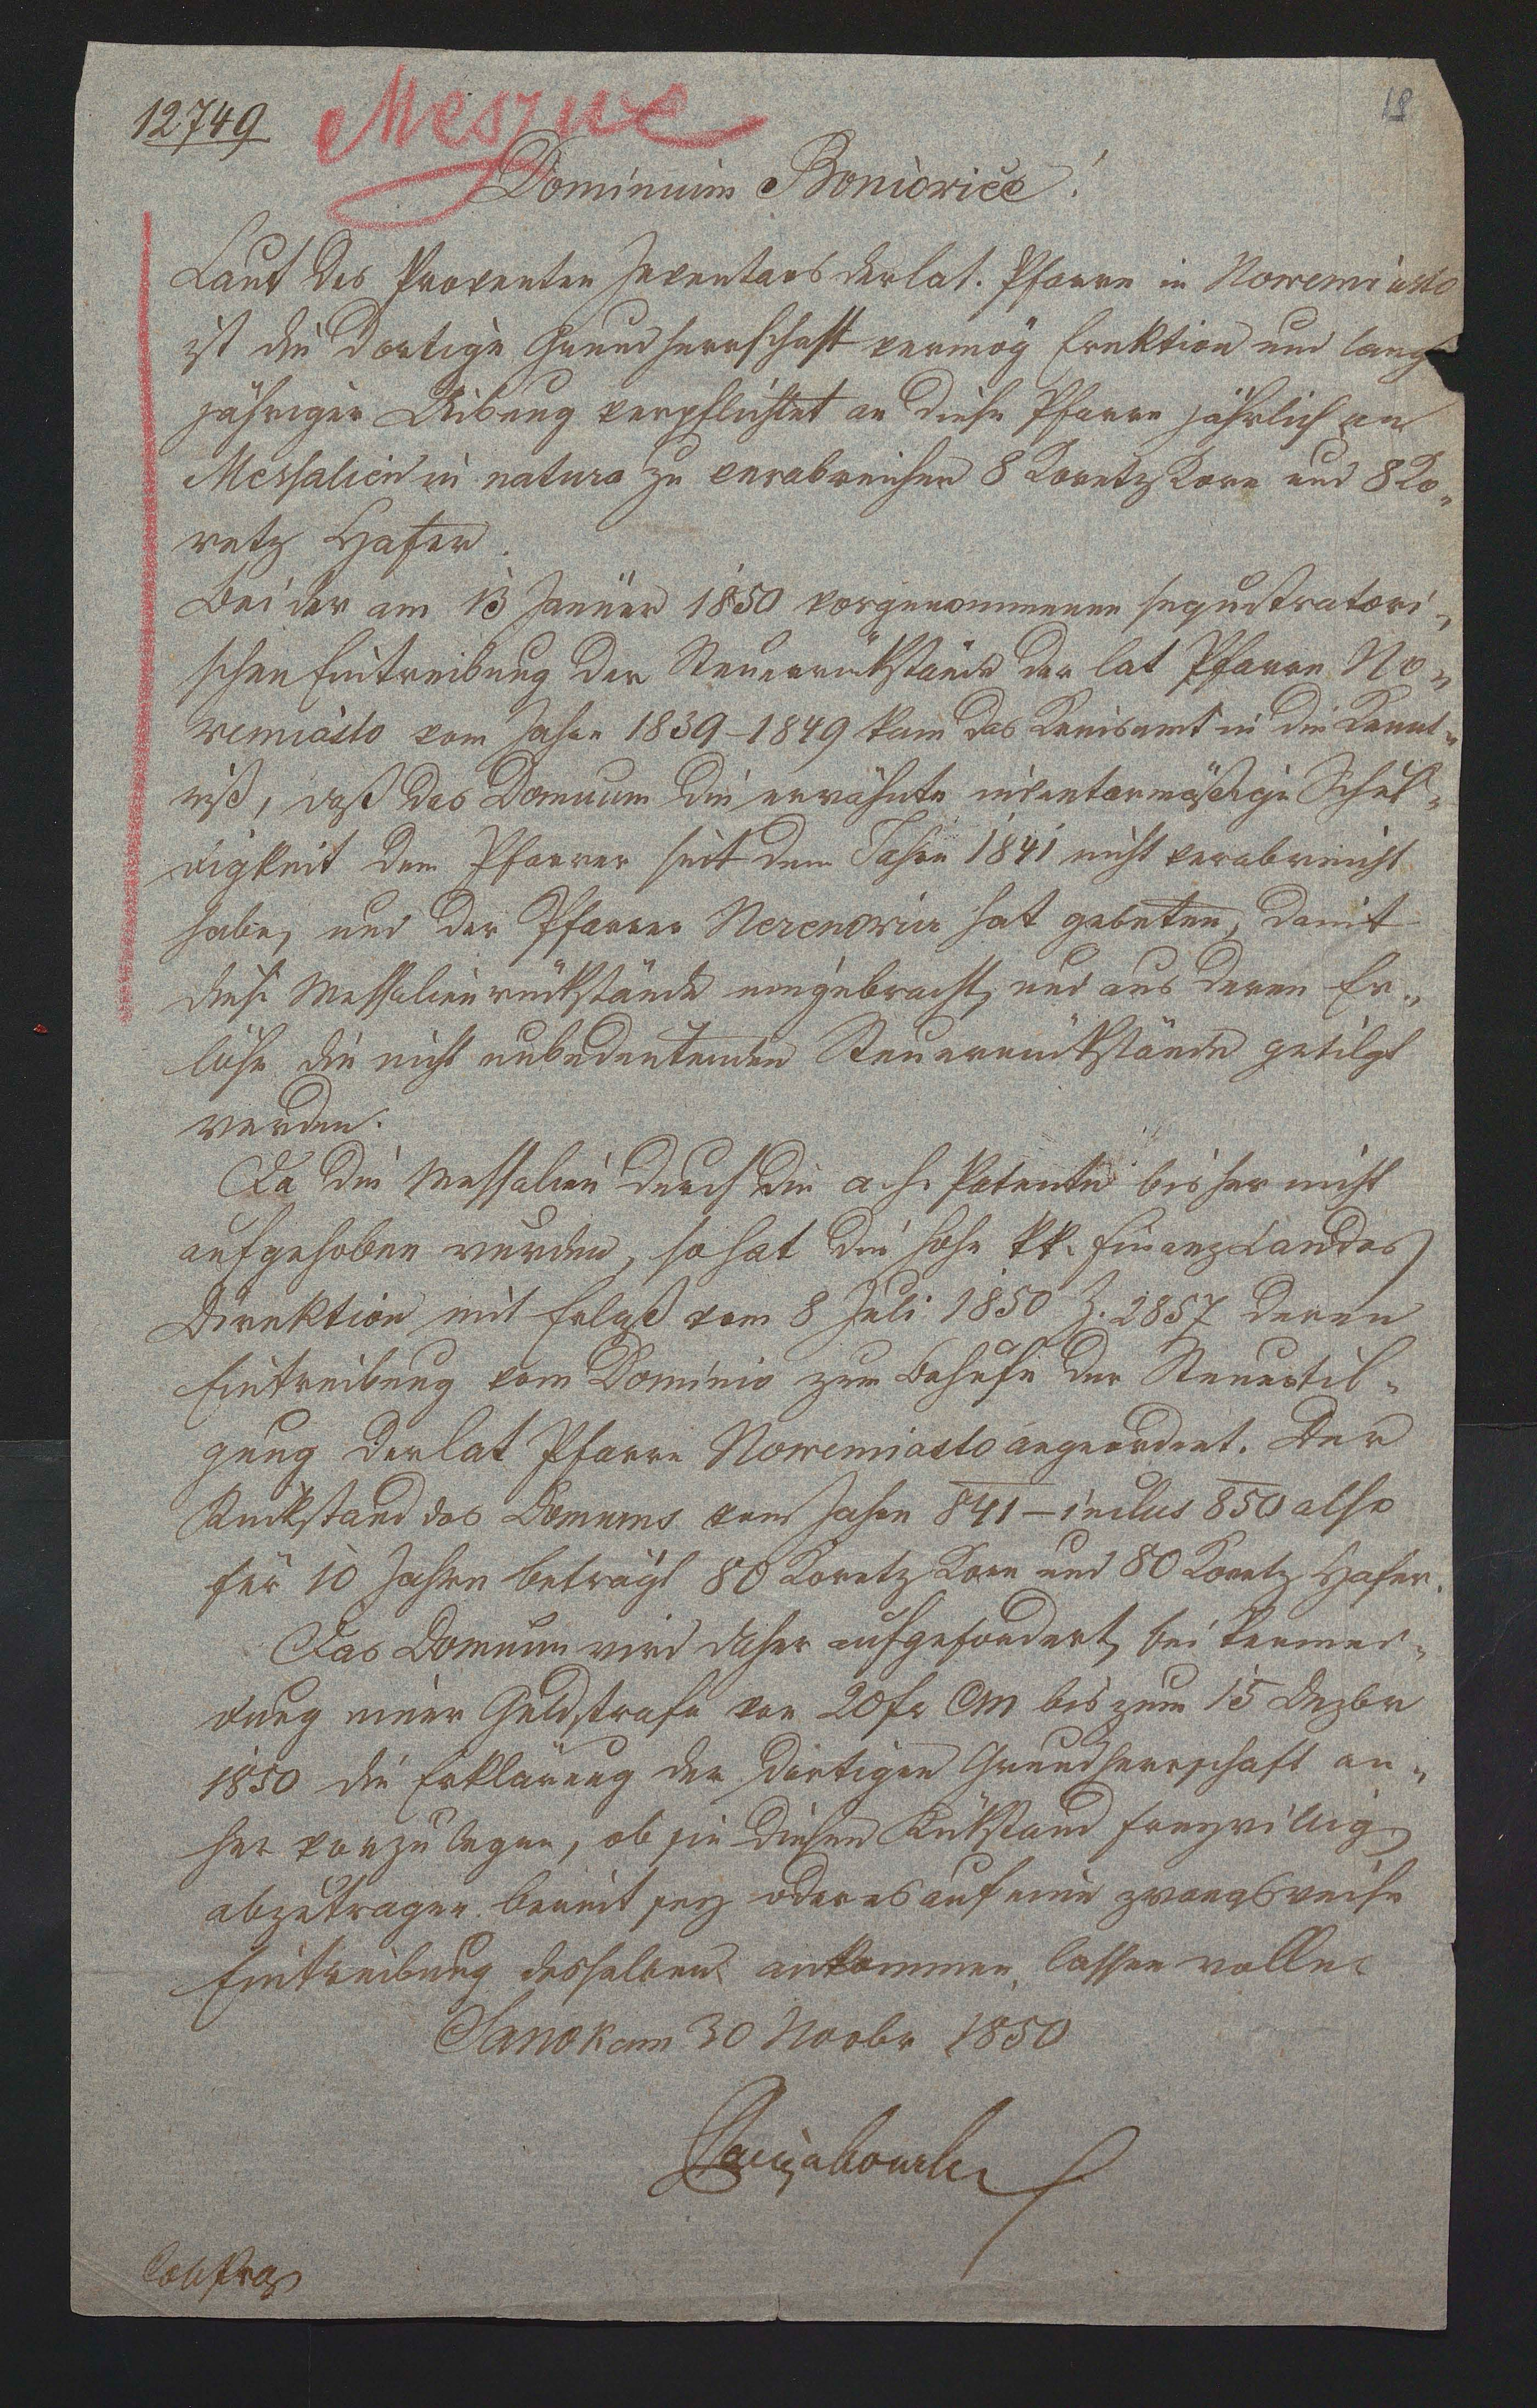 12749
Meszne
18
Dominium Boniowice!
Laut des Proventen Inventars der lat. Pfarre in Nowemiasto
ist die dortige Grundherrschaft vermög Erektion und lang
jähriger Uibung verpflichtet an diese Pfarre jährlich an
Messalien in natura zu verabreichen 8 Koretz Korn und 8 Ko„
retz Hafer.
Bei der am 13 Jänner 1850 vorgenommenen sequstratori„
schen Eintreibung der Steuerrükstände der lat Pfarre No„
wemiasto vom Jahre 1839–1849 kam das Kreisamt in die Kennt„
niß, daß das Domium die erwähnte inventarmäßige Schul„
digkeit dem Pfarrer seit dem Jahre 1841 nicht verabreicht
habe, und der Pfarrer hat gebeten, damit
diese Messalienrückstände eingebracht, und aus deren Er„
löse die nicht unbedeutenden Steuerrükstände getilgt
werden.
Da die Messalien durch die a. h. Patente bisher nicht
aufgehoben wurden, so hat die hohe kk. Finanz Landes
Direktion mit Erlaß vom 8 Juli 1850 Z. 2857 deren
Eintreibung vom Dominio zum Behufe der Steuertil„
gung der lat Pfarre Nowemiasto angeordnet. Der
Rückstand des Domiums vom Jahre 841 – inclus 850 also
für 10 Jahre beträgt 80 Koretz Korn und 80 Koretz Hafer.
Das Domium wird daher aufgefordert, bei Vermei„
dung einer Geldstrafe von 20 fr CM bis zum 15 Dezbr
1850 die Erklärung der dortigen Grundherrschaft an„
her vorzulegen, ob sie diesen Rükstand freywillig
abzutragen bereit sey oder es auf eine zwangsweise
Eintreibung desselben ankommen lassen wolle.
Sanok am 30 Novbr 1850